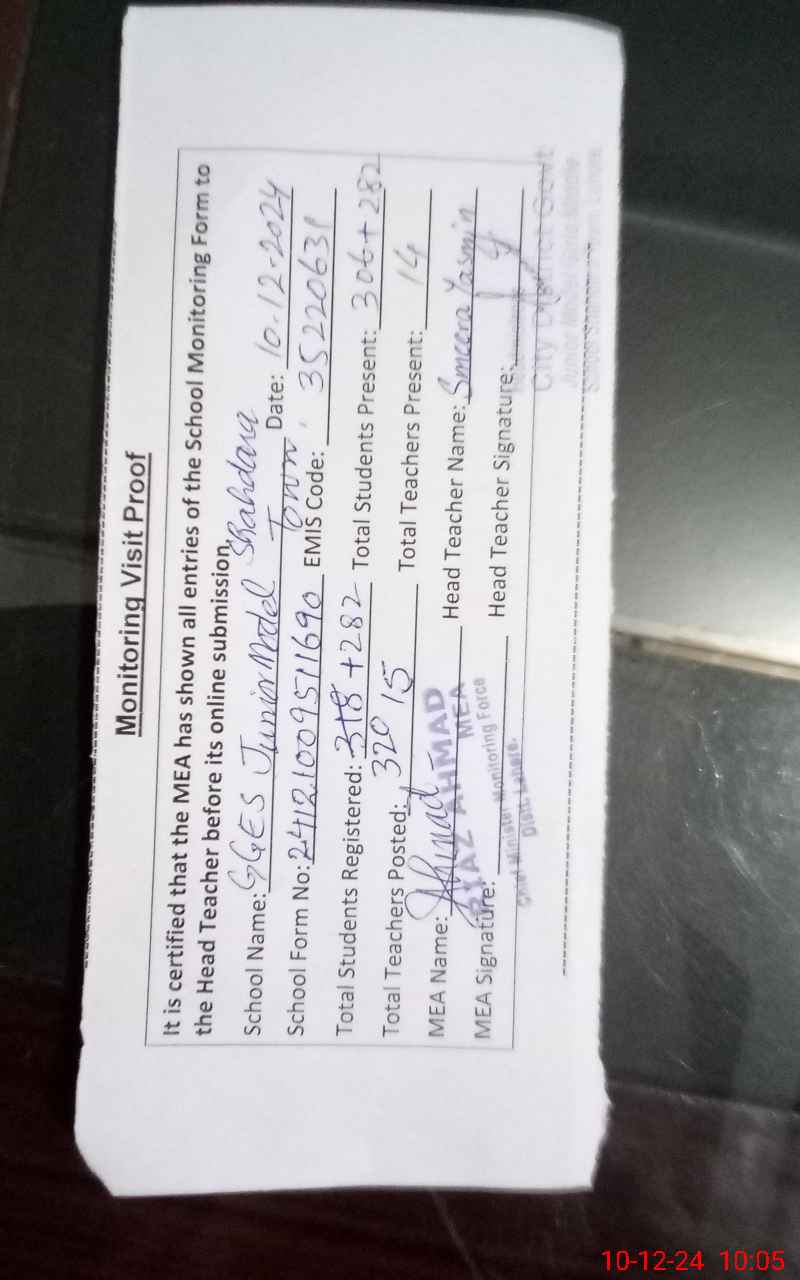 Monitoring Visit Proof
It is certified that the MEA has shown all entries of the School Monitoring Form to
the Head Teacher before its online submission.
School Name: GGES Junior Model Shahdara Town. Date: 10-12-2024
School Form No: 24121009511690 EMIS Code: 35220631
Total Students Registered: 318 + 282 Total Students Present: 306 + 282
320
Total Teachers Posted: 15 Total Teachers Present: 14
MEA Name: Ahmad Head Teacher Name: Smeera Yasmin
MEA Signature: Head Teacher Signature:
AHMAD
MEA
Chief Minister Monitoring Force
Distt. Lahore.
City District Govt
10-12-24 10:05